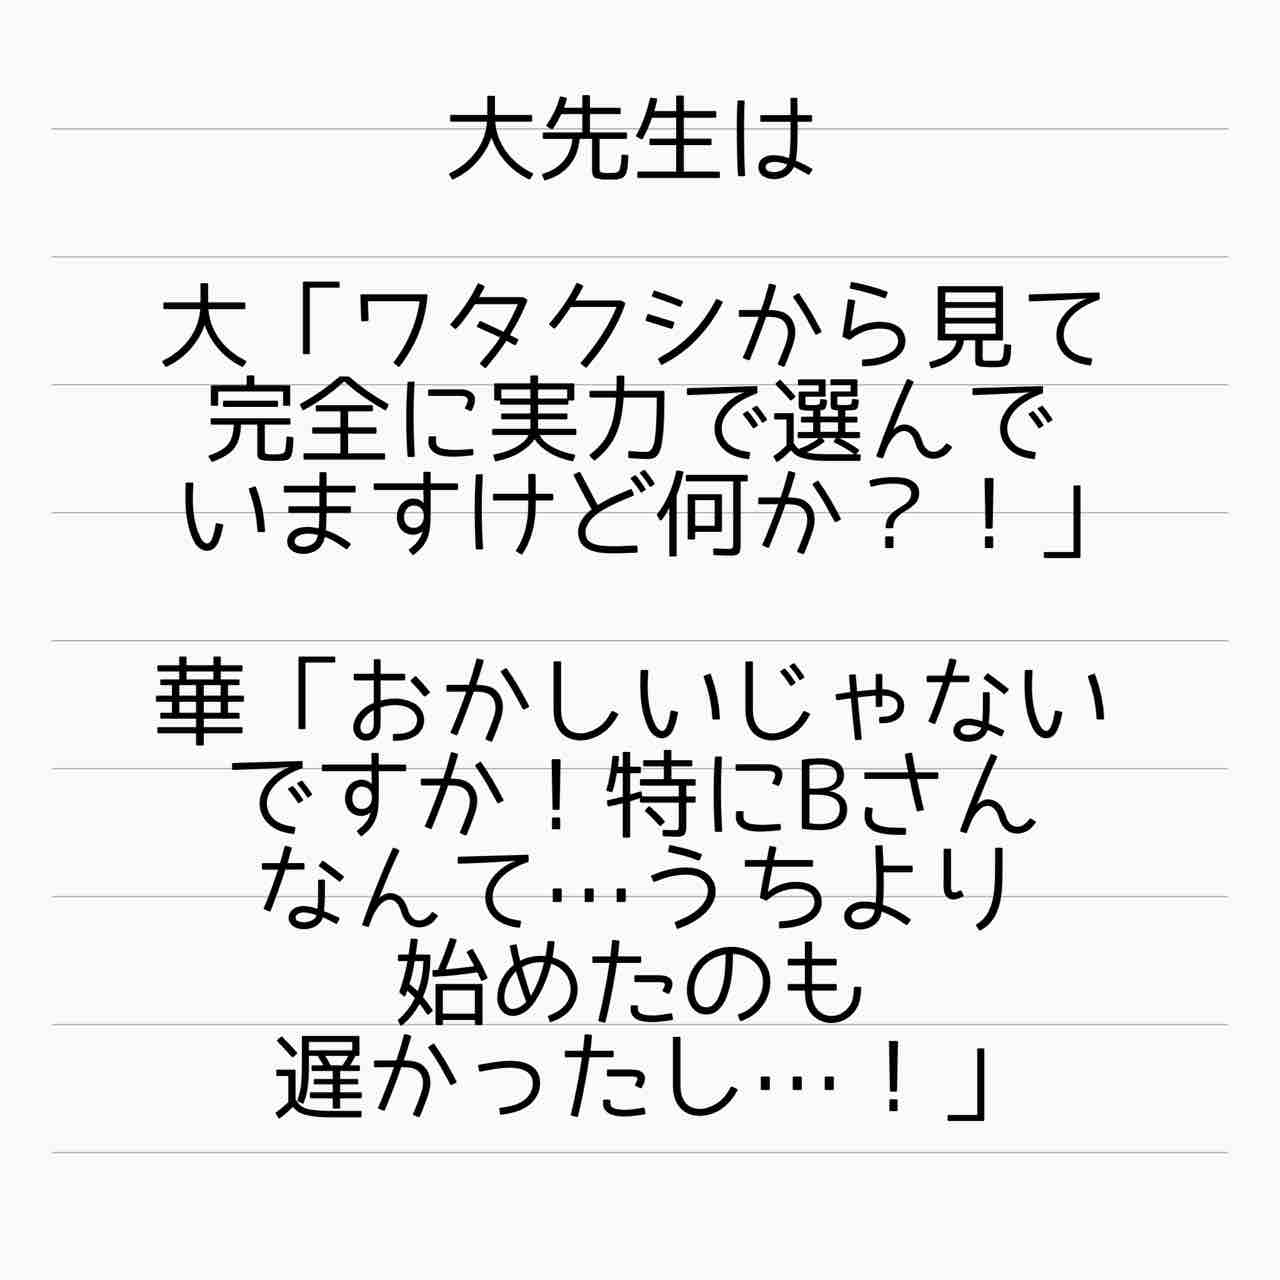 大先生は
大「ワタクシから見て
完全に実力で選んで
いますけど何か？！」
華「おかしいじゃない
ですか！特にBさん
なんて…うちより
始めたのも
遅かったし…！」